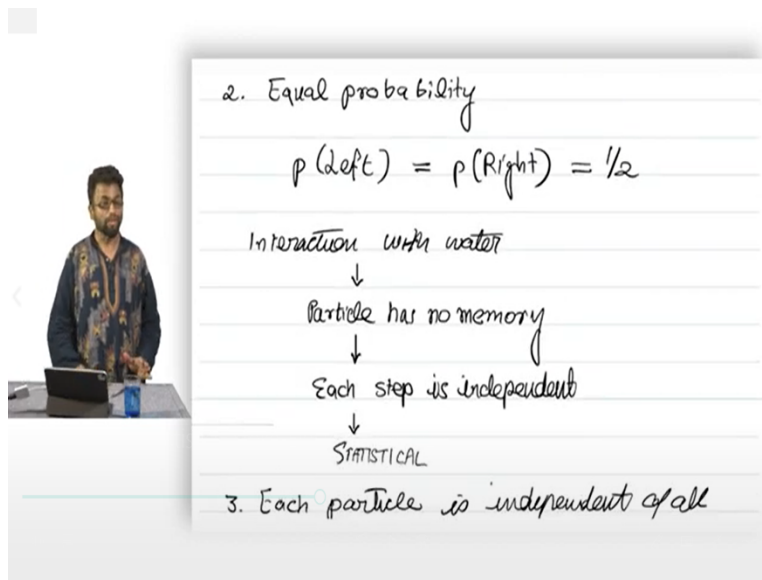 2. Equal probability
p (Left) = p (Right) = 1/2
Interaction with water
↓
Particle has no memory
↓
Each step is independent
↓
STATISTICAL
3. Each particle is independent of all